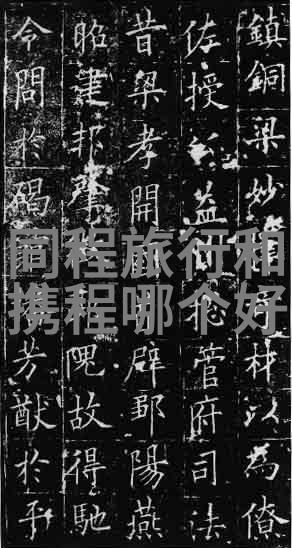 鎮銅梁妙材以為僚
佐授益管府司法
昔梁孝開辟鄒陽燕
昭建邦肇隗故得馳
令問於碣芳猷於平
同程旅行和
携程哪个好